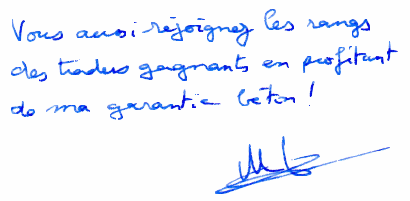 Vous aussi rejoignez les rangs
des traders gagnants en profitant
de ma garantie béton !